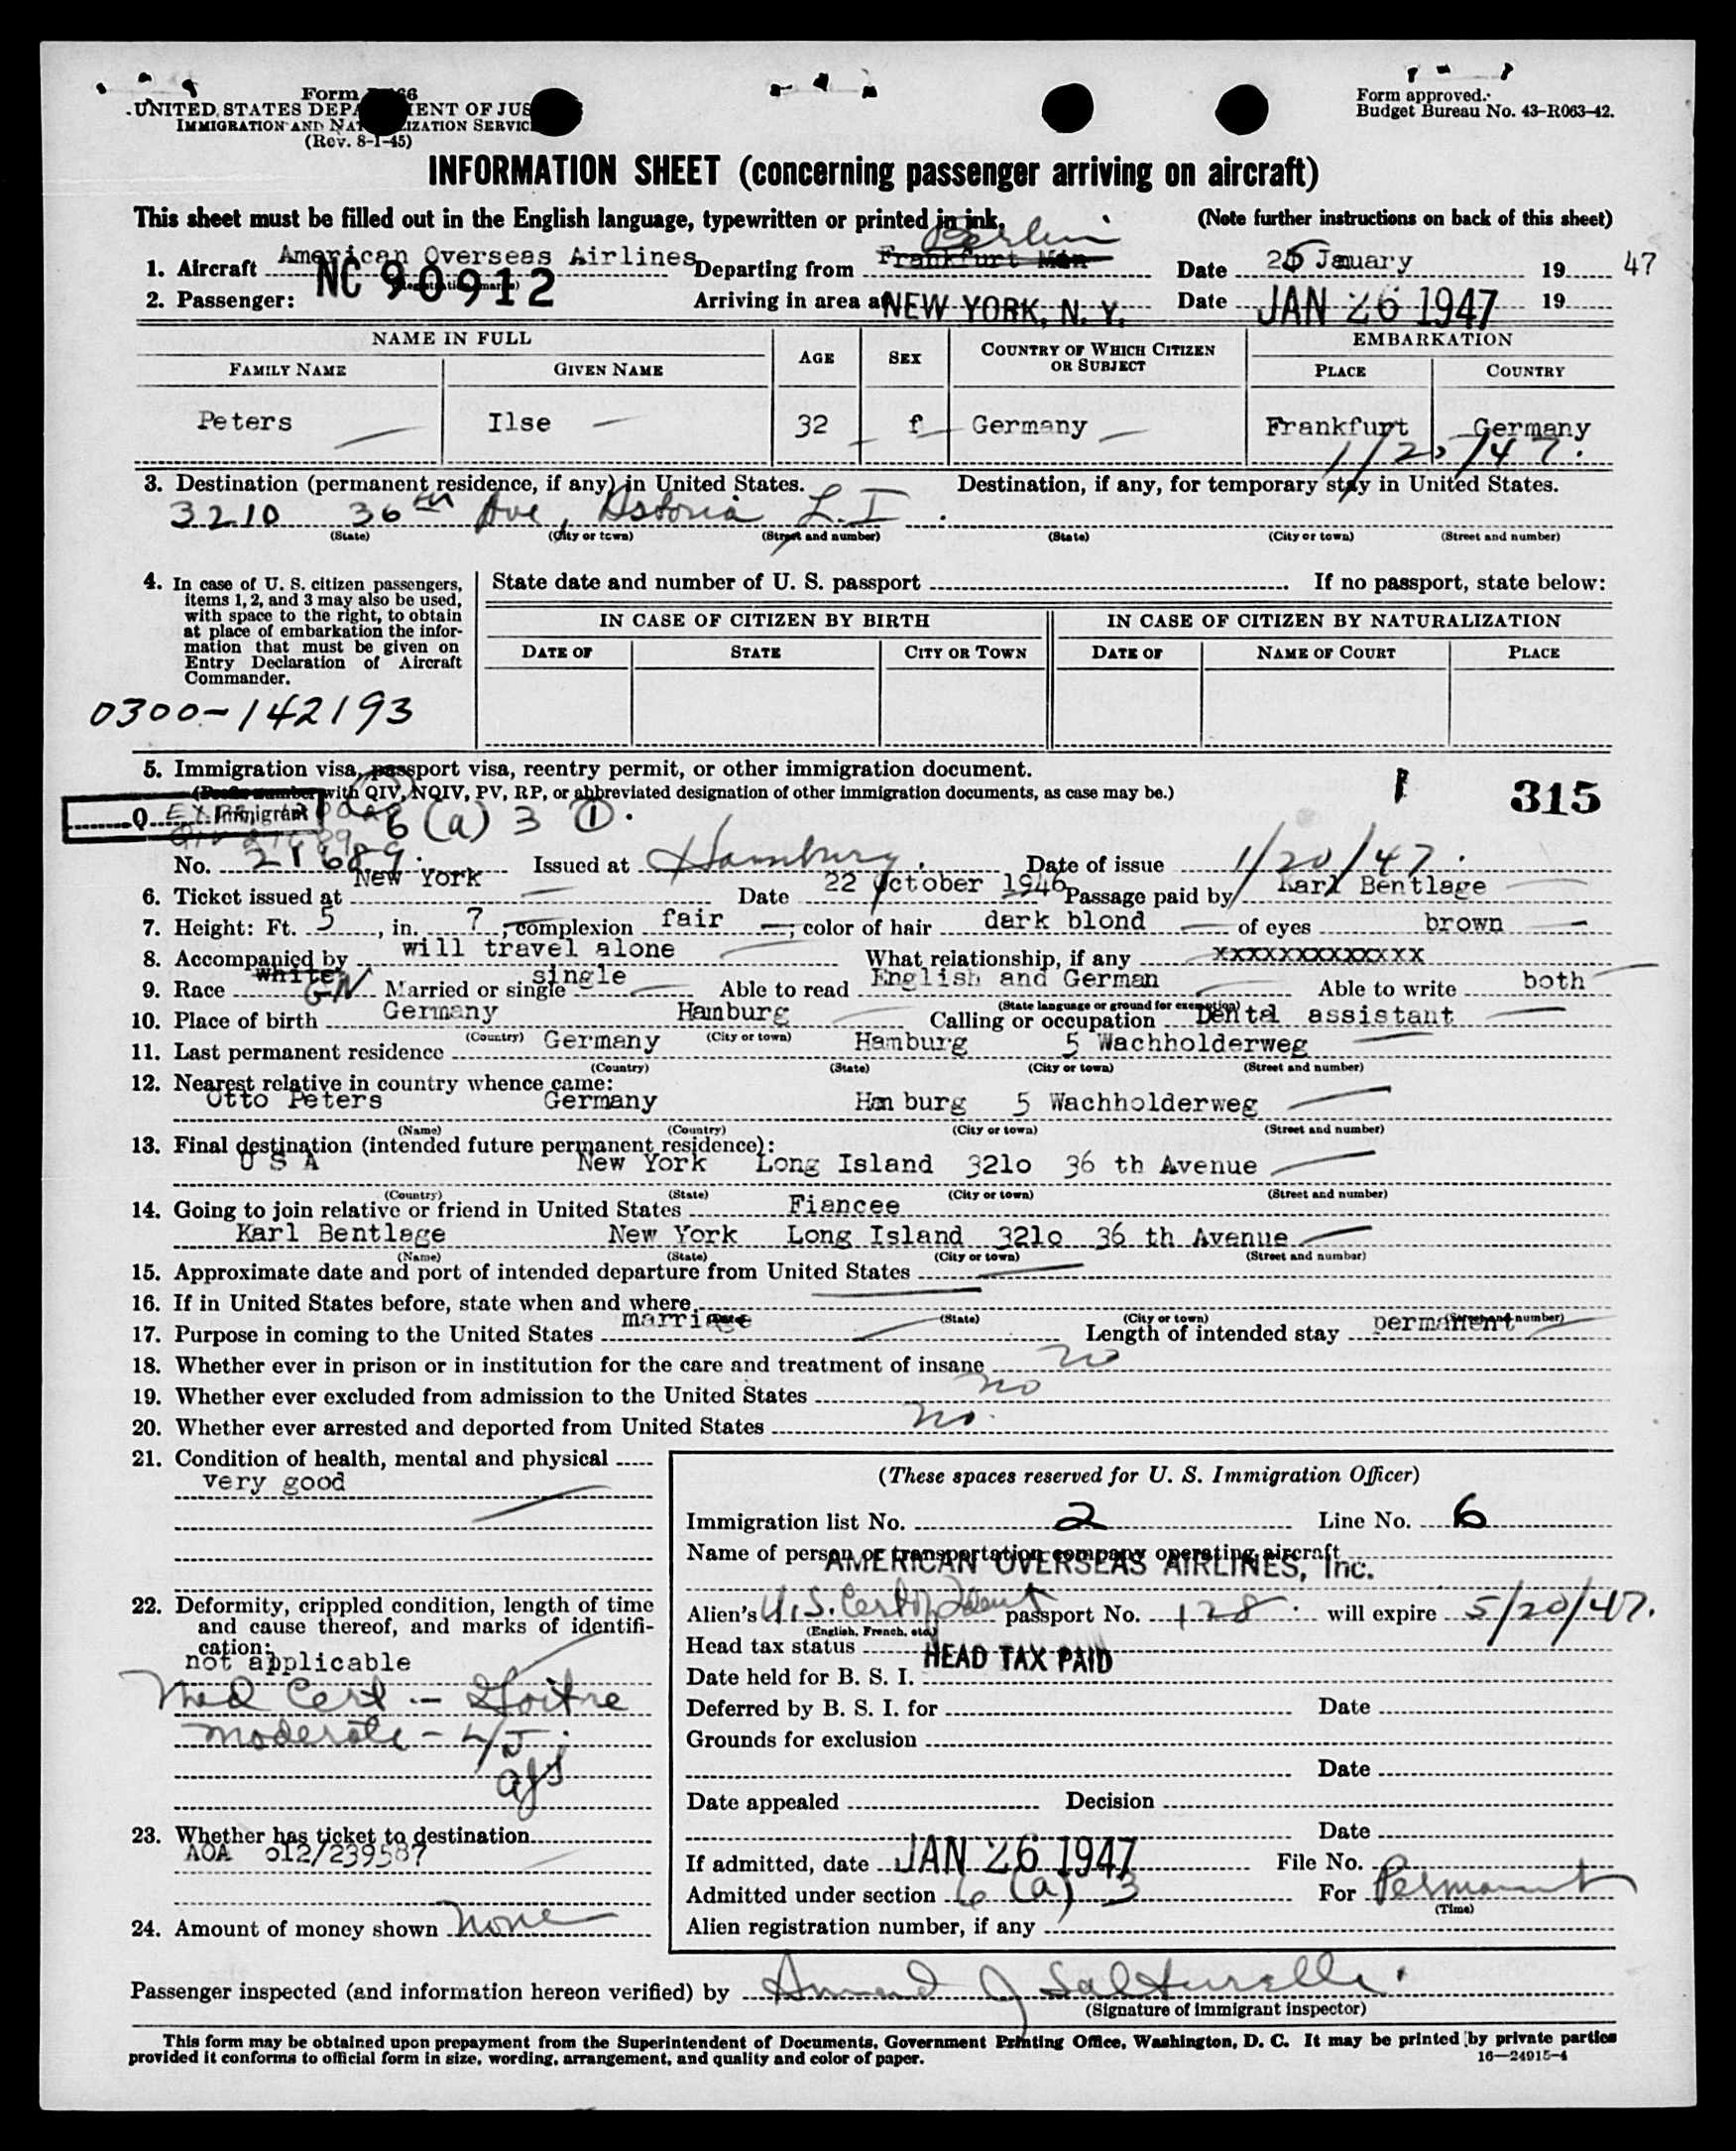 Form
UNITED STATES DEPARTMENT OF JUS
IMMIGRATION AND NATURALIZATION SERVICE
(Rev. 8-1-45)
Form approved.
Budget Bureau No. 43-R063-42.
INFORMATION SHEET (concerning passenger arriving on aircraft)
This sheet must be filled out in the English language, typewritten or printed in ink. (Note further instructions on back of this sheet)
Berlin
1. Aircraft American Overseas Airlines Departing from Frankfurt Main Date 25 January 19 47
NC 90912
2. Passenger: Arriving in area at NEW YORK, N. Y. Date JAN 26 1947 19
NAME IN FULL AGE SEX COUNTRY OF WHICH CITIZEN OR SUBJECT EMBARKATION
FAMILY NAME GIVEN NAME PLACE COUNTRY
Peters Ilse 32 f Germany Frankfurt Germany
1/25/47.
3. Destination (permanent residence, if any) in United States. Destination, if any, for temporary stay in United States.
3210 36th Ave, Astoria L.I.
(State) (City or town) (Street and number) (State) (City or town) (Street and number)
4. In case of U. S. citizen passengers, items 1, 2, and 3 may also be used, with space to the right, to obtain at place of embarkation the information that must be given on Entry Declaration of Aircraft Commander.
State date and number of U. S. passport If no passport, state below:
IN CASE OF CITIZEN BY BIRTH IN CASE OF CITIZEN BY NATURALIZATION
DATE OF STATE CITY OR TOWN DATE OF NAME OF COURT PLACE
0300-142193
5. Immigration visa, passport visa, reentry permit, or other immigration document.
(Prefix number with QIV, NQIV, PV, RP, or abbreviated designation of other immigration documents, as case may be.)
315
Q Immigrant 6(a)3 1.
No. 21689. Issued at Hamburg. Date of issue 1/20/47.
6. Ticket issued at New York Date 22 October 1946 Passage paid by Karl Bentlage
7. Height: Ft. 5, in. 7; complexion fair; color of hair dark blond of eyes brown
8. Accompanied by will travel alone What relationship, if any xxxxxxxxxxxxx
9. Race white GN Married or single single Able to read English and German Able to write both
(State language or ground for exemption)
10. Place of birth Germany Hamburg Calling or occupation Dental assistant
(Country) (City or town)
11. Last permanent residence Germany Hamburg 5 Wachholderweg
(Country) (State) (City or town) (Street and number)
12. Nearest relative in country whence came:
Otto Peters Germany Hamburg 5 Wachholderweg
(Name) (Country) (City or town) (Street and number)
13. Final destination (intended future permanent residence):
U S A New York Long Island 321o 36 th Avenue
(Country) (State) (City or town) (Street and number)
14. Going to join relative or friend in United States Fiancee
Karl Bentlage New York Long Island 321o 36 th Avenue
(Name) (State) (City or town) (Street and number)
15. Approximate date and port of intended departure from United States
16. If in United States before, state when and where
(Date) (State) (City or town) (Street and number)
17. Purpose in coming to the United States marriage Length of intended stay permanent
18. Whether ever in prison or in institution for the care and treatment of insane no
19. Whether ever excluded from admission to the United States no
20. Whether ever arrested and deported from United States no.
21. Condition of health, mental and physical
very good
22. Deformity, crippled condition, length of time and cause thereof, and marks of identification:
not applicable
Med Cert - Goitre
moderate -
ajs
23. Whether has ticket to destination
AOA o12/239587
24. Amount of money shown none
(These spaces reserved for U. S. Immigration Officer)
Immigration list No. 2 Line No. 6
Name of person or transportation company operating aircraft
AMERICAN OVERSEAS AIRLINES, Inc.
Alien's U.S. Cert of Ident passport No. 128. will expire 5/20/47.
(English, French, etc.)
Head tax status HEAD TAX PAID
Date held for B. S. I.
Deferred by B. S. I. for Date
Grounds for exclusion
Date
Date appealed Decision
Date
If admitted, date JAN 26 1947 File No.
Admitted under section 6(a)3 For Permanent
(Time)
Alien registration number, if any
Passenger inspected (and information hereon verified) by
(Signature of immigrant inspector)
This form may be obtained upon prepayment from the Superintendent of Documents, Government Printing Office, Washington, D. C. It may be printed by private parties
provided it conforms to official form in size, wording, arrangement, and quality and color of paper. 16—24915-4